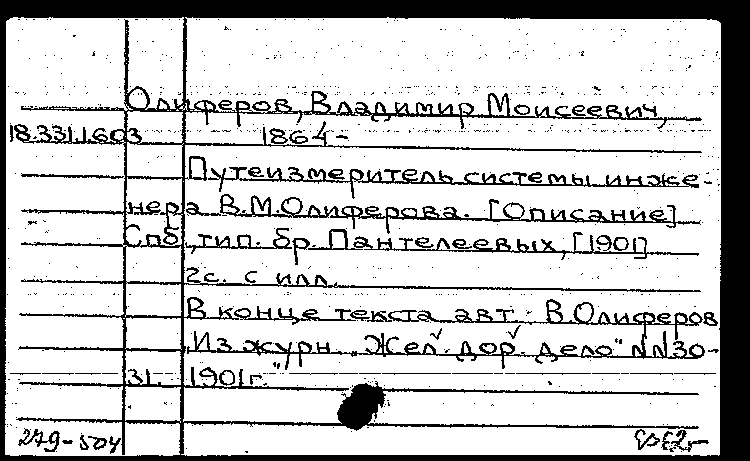 Олиферов, Владимир Моисеевич,
18.331.1.603 1864-
Путеизмеритель системы инже-
нера В.М.Олиферова. [Описание]
Спб., тип. бр. Пантелеевых, [1901]
2с. с илл.
В конце текста авт: В.Олиферов
„Из журн. „Жел. дор. дело" NN30-
31. 1901г."
279-504